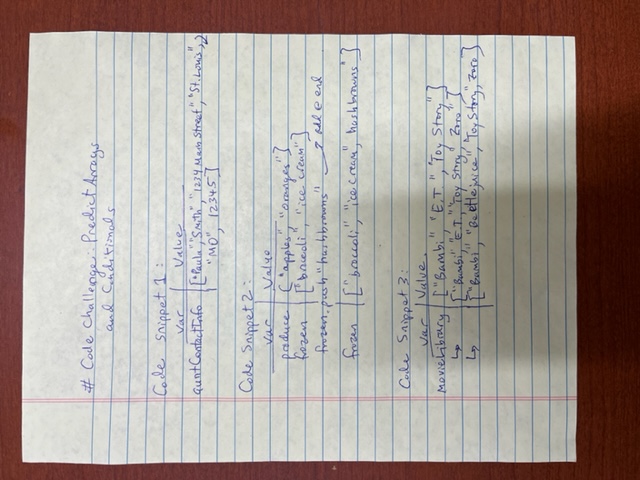 # Code Challenge: Predict Arrays
and Conditionals
Code Snippet 1:
var | Value
auntContactInfo | ["Paula", "Smith", "1234 Main Street", "St. Louis",
"MO", 12345]
Code Snippet 2:
var | Value
produce | ["apples", "oranges"]
frozen | ["broccoli", "ice cream"]
frozen.push "hashbrowns" → add @ end
frozen | ["broccoli", "ice cream", hashbrowns"]
Code Snippet 3:
var | Value
movieLibrary | ["Bambi", "E.T.", "Toy Story"]
↳ | ["Bambi", "E.T.", "Toy Story", Zoro"]
↳ | ["Bambi", "Beetlejuice", "Toy Story", Zoro]